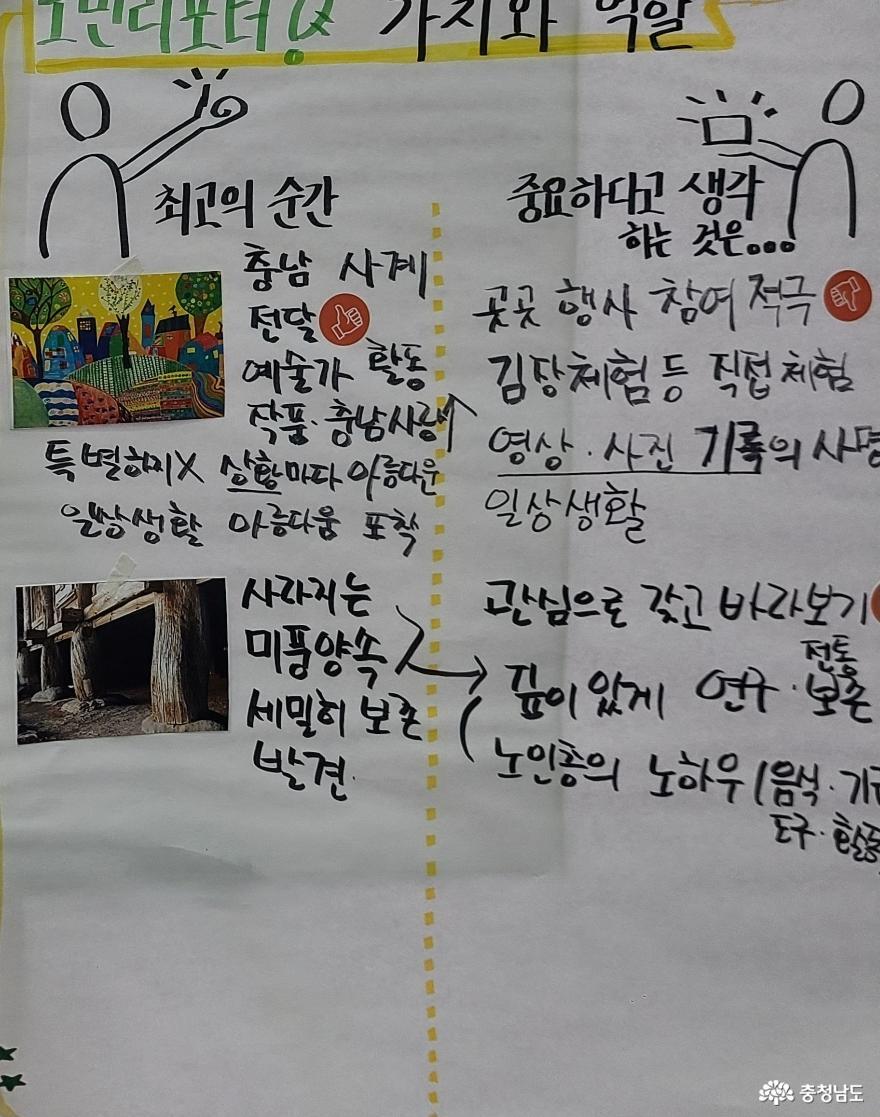 도민리포터! 가치와 역할
최고의 순간
충남 사계
전달
예술가 활동
작품·충남사랑
특별하지X 상황마다 아름다운
일상생활 아름다움 포착
사라지는
미풍양속
세밀히 보존
발견.
중요하다고 생각
하는 것은...
곳곳 행사 참여 적극
김장체험 등 직접 체험
영상·사진 기록의 사명
일상생활
관심으로 갖고 바라보기
전통
깊이 있게 연구·보존
노인층의 노하우(음식·기
도구·활동
충청남도